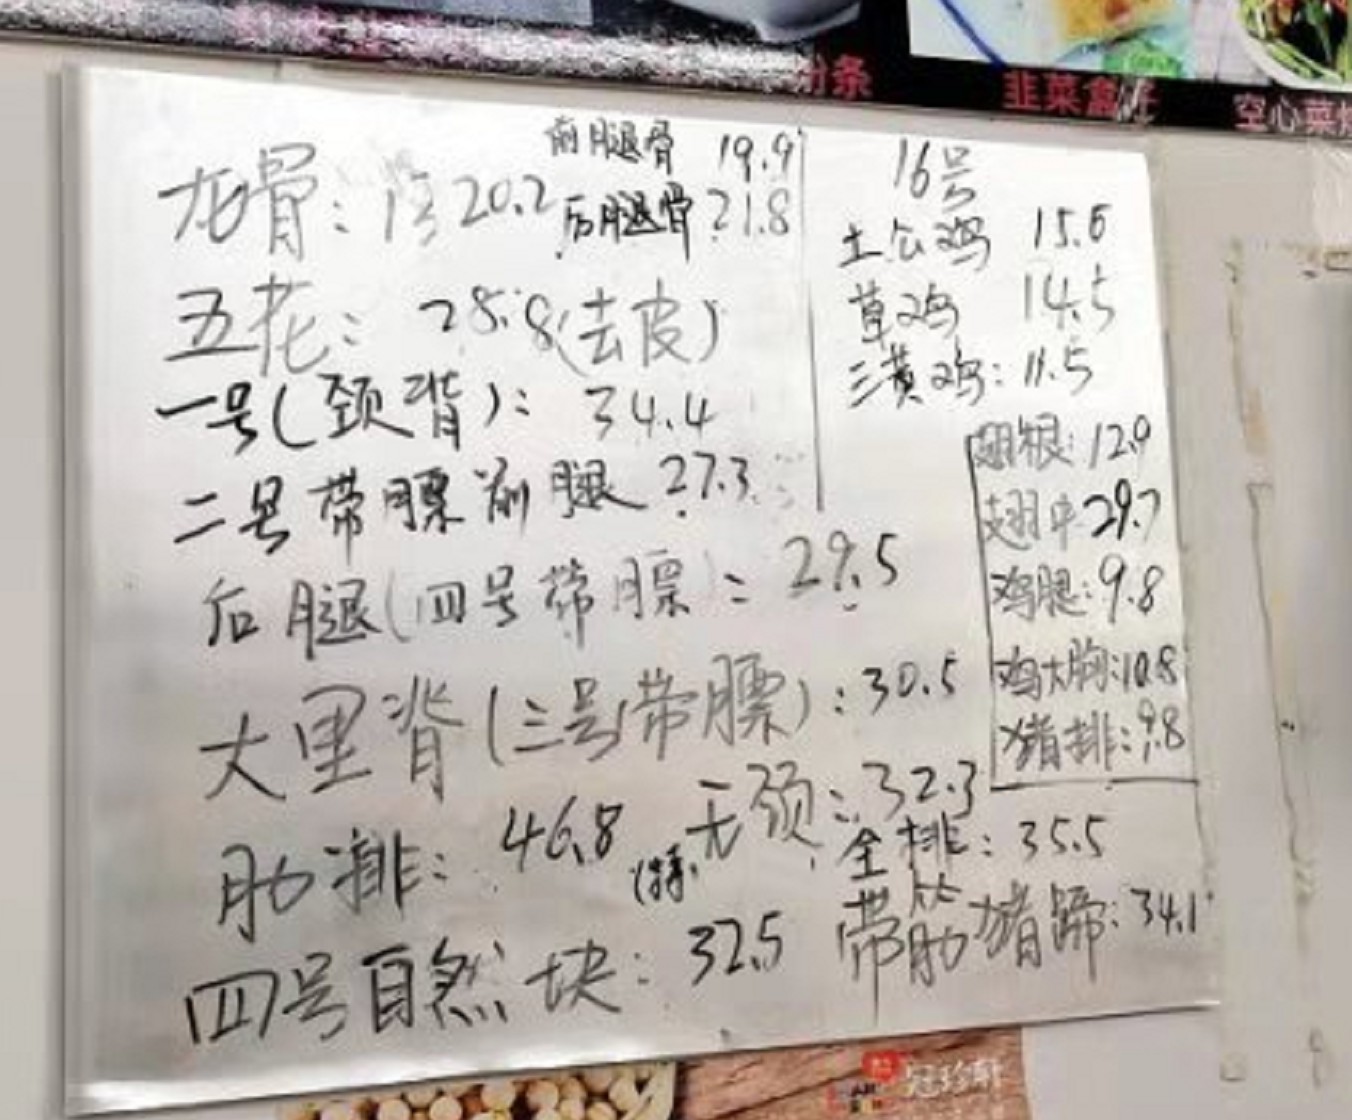 条
韭菜盒子
空心菜
前腿骨 19.9
龙骨: 1号20.2 后腿骨 21.8
五花: 28.8(去皮)
一号(颈背): 34.4
二号带膘前腿 27.3
后腿(四号带膘): 29.5
大里脊(三号带膘): 30.5
肋排: 46.8 无颈: 32.3
四号自然块: 32.5
16号
土公鸡 15.6
草鸡 14.5
三黄鸡: 11.5
翅根: 12.9
翅中 29.7
鸡腿: 9.8
鸡大胸: 10.8
猪排: 9.8
全排: 35.5
带筋猪蹄: 34.1
冠珍轩